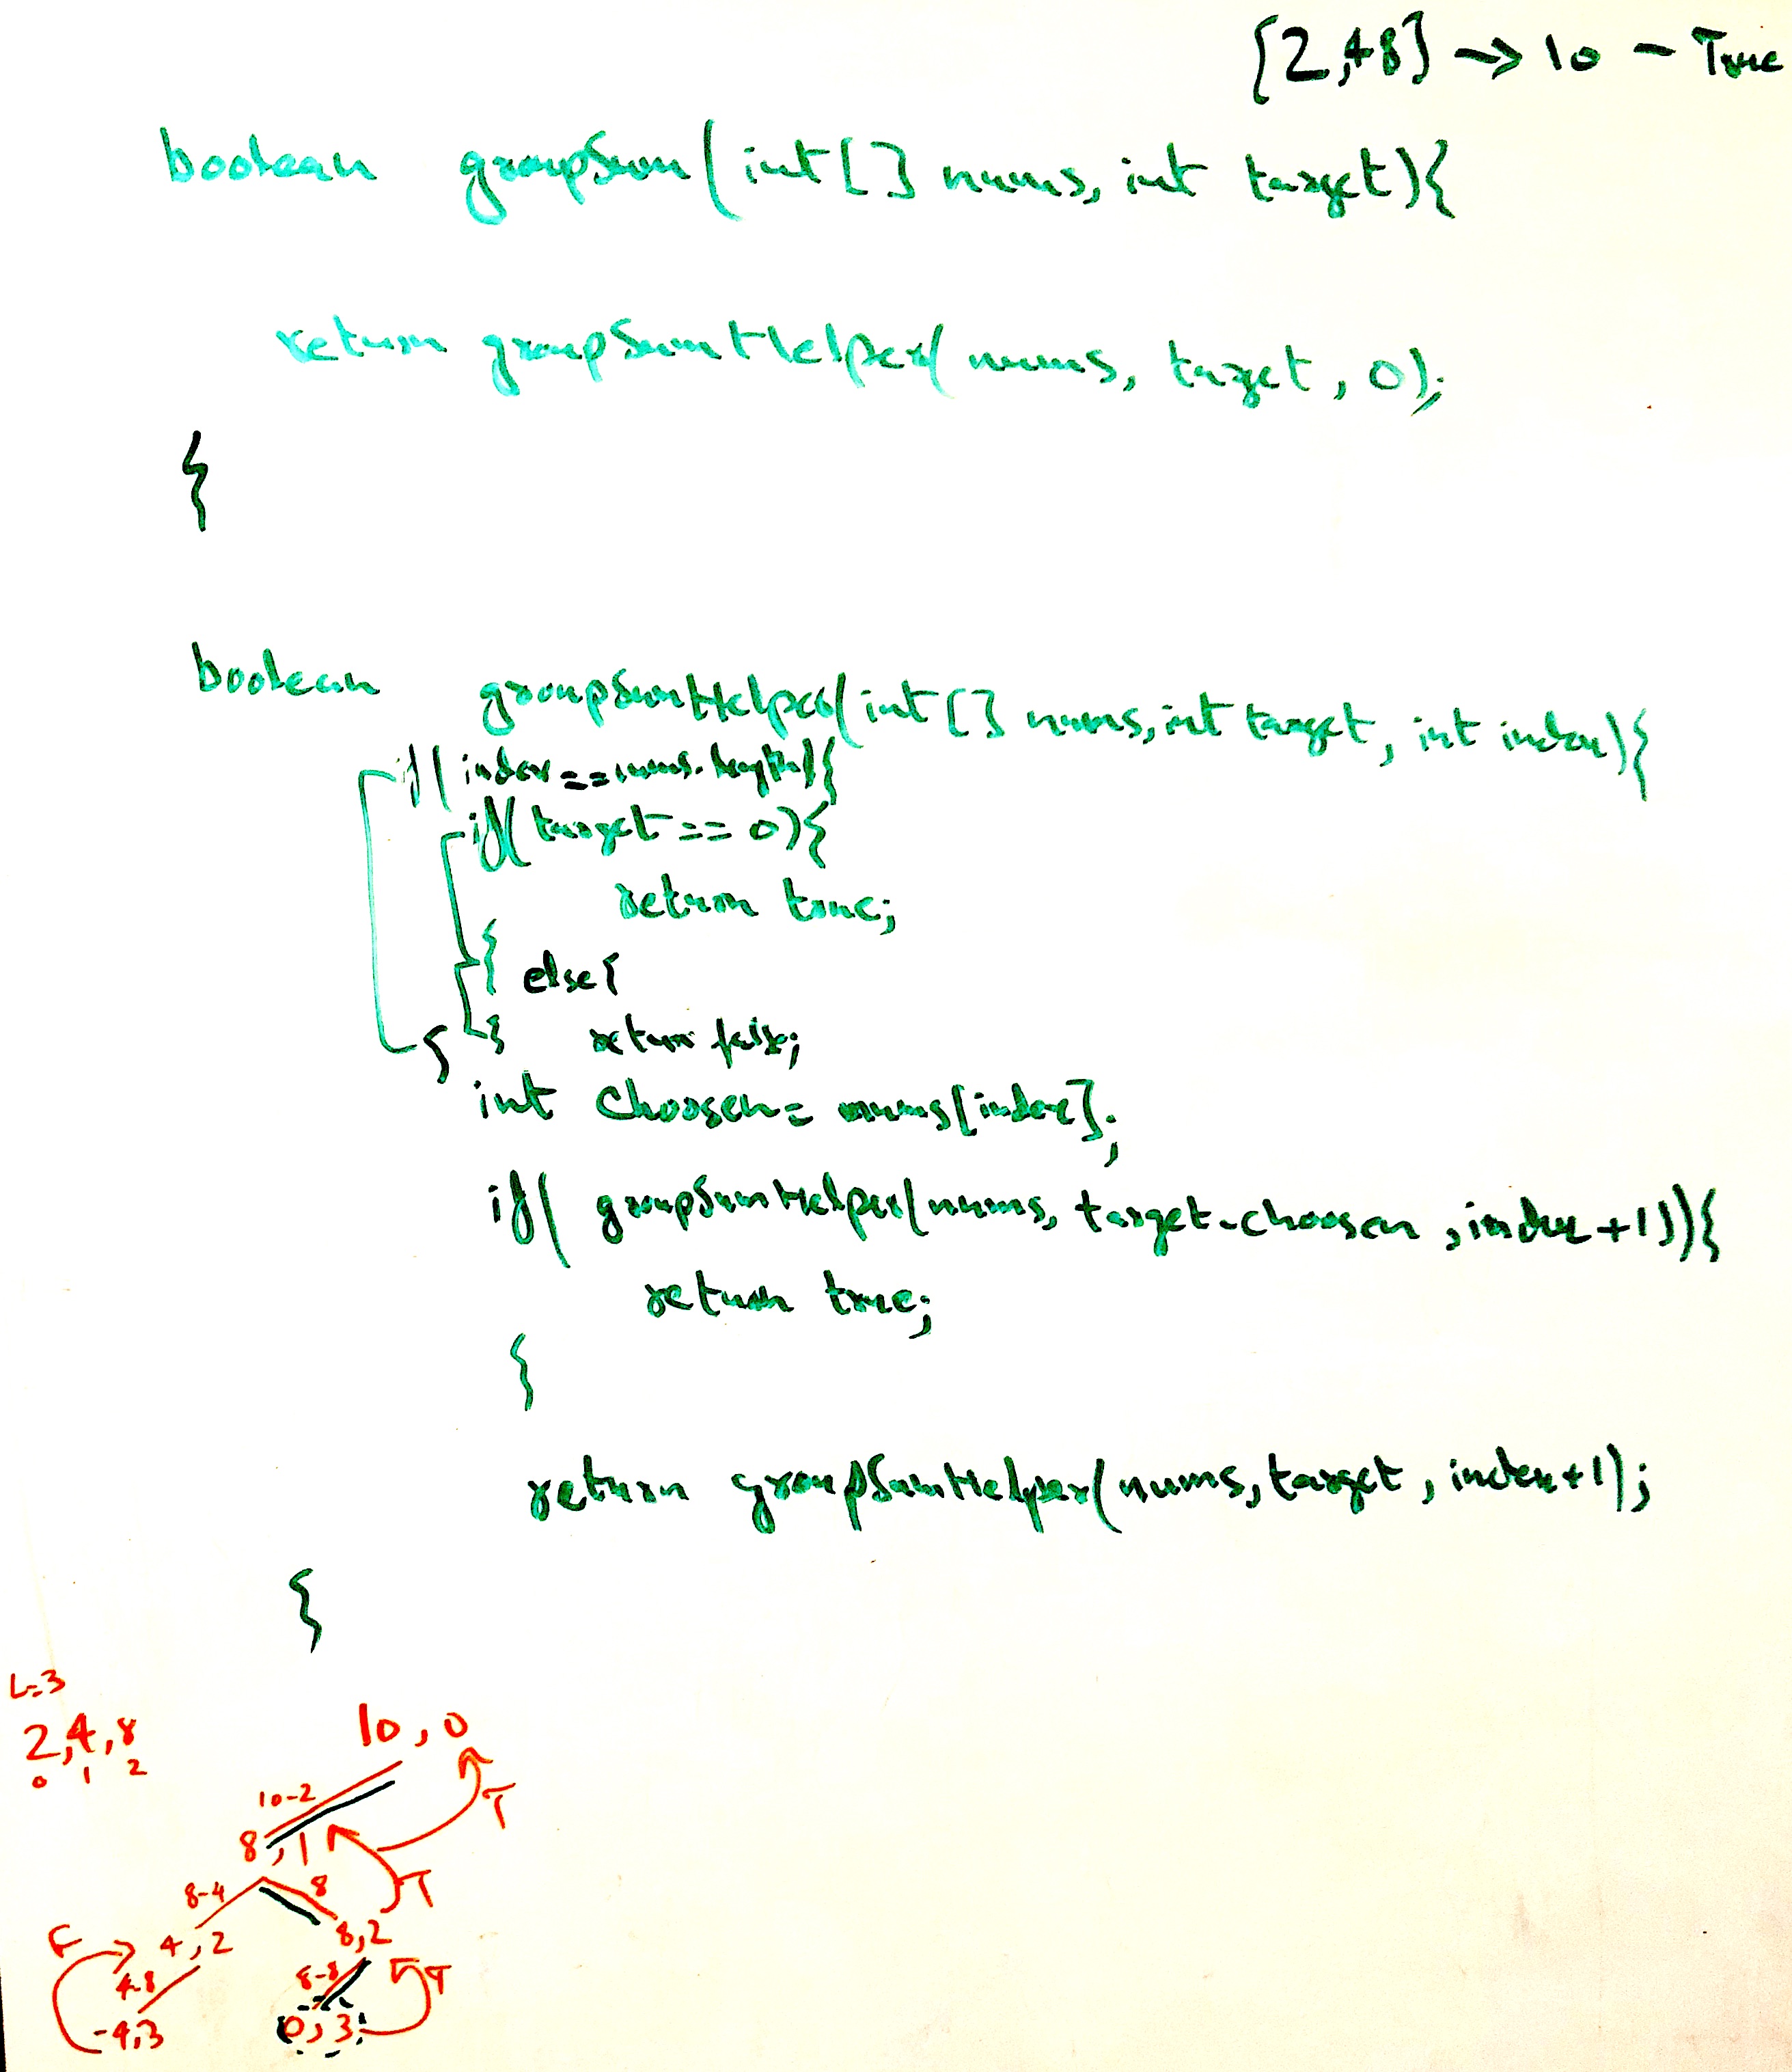 {2,4,8} → 10 - True
boolean groupSum(int[] nums, int target){
return groupSumHelper(nums, target, 0);
}
boolean groupSumHelper(int[] nums, int target, int index){
if(index==nums.length){
if(target==0){
return true;
} else{
} return false;
}
int choosen= nums[index];
if(groupSumHelper(nums, target-choosen, index+1)){
return true;
}
return groupSumHelper(nums, target, index+1);
}
L=3
2,4,8
0 1 2
10,0
10-2
T
8,1
8-4
8
T
F
4,2
8,2
4-8
8-8
T
-4,3
0,3